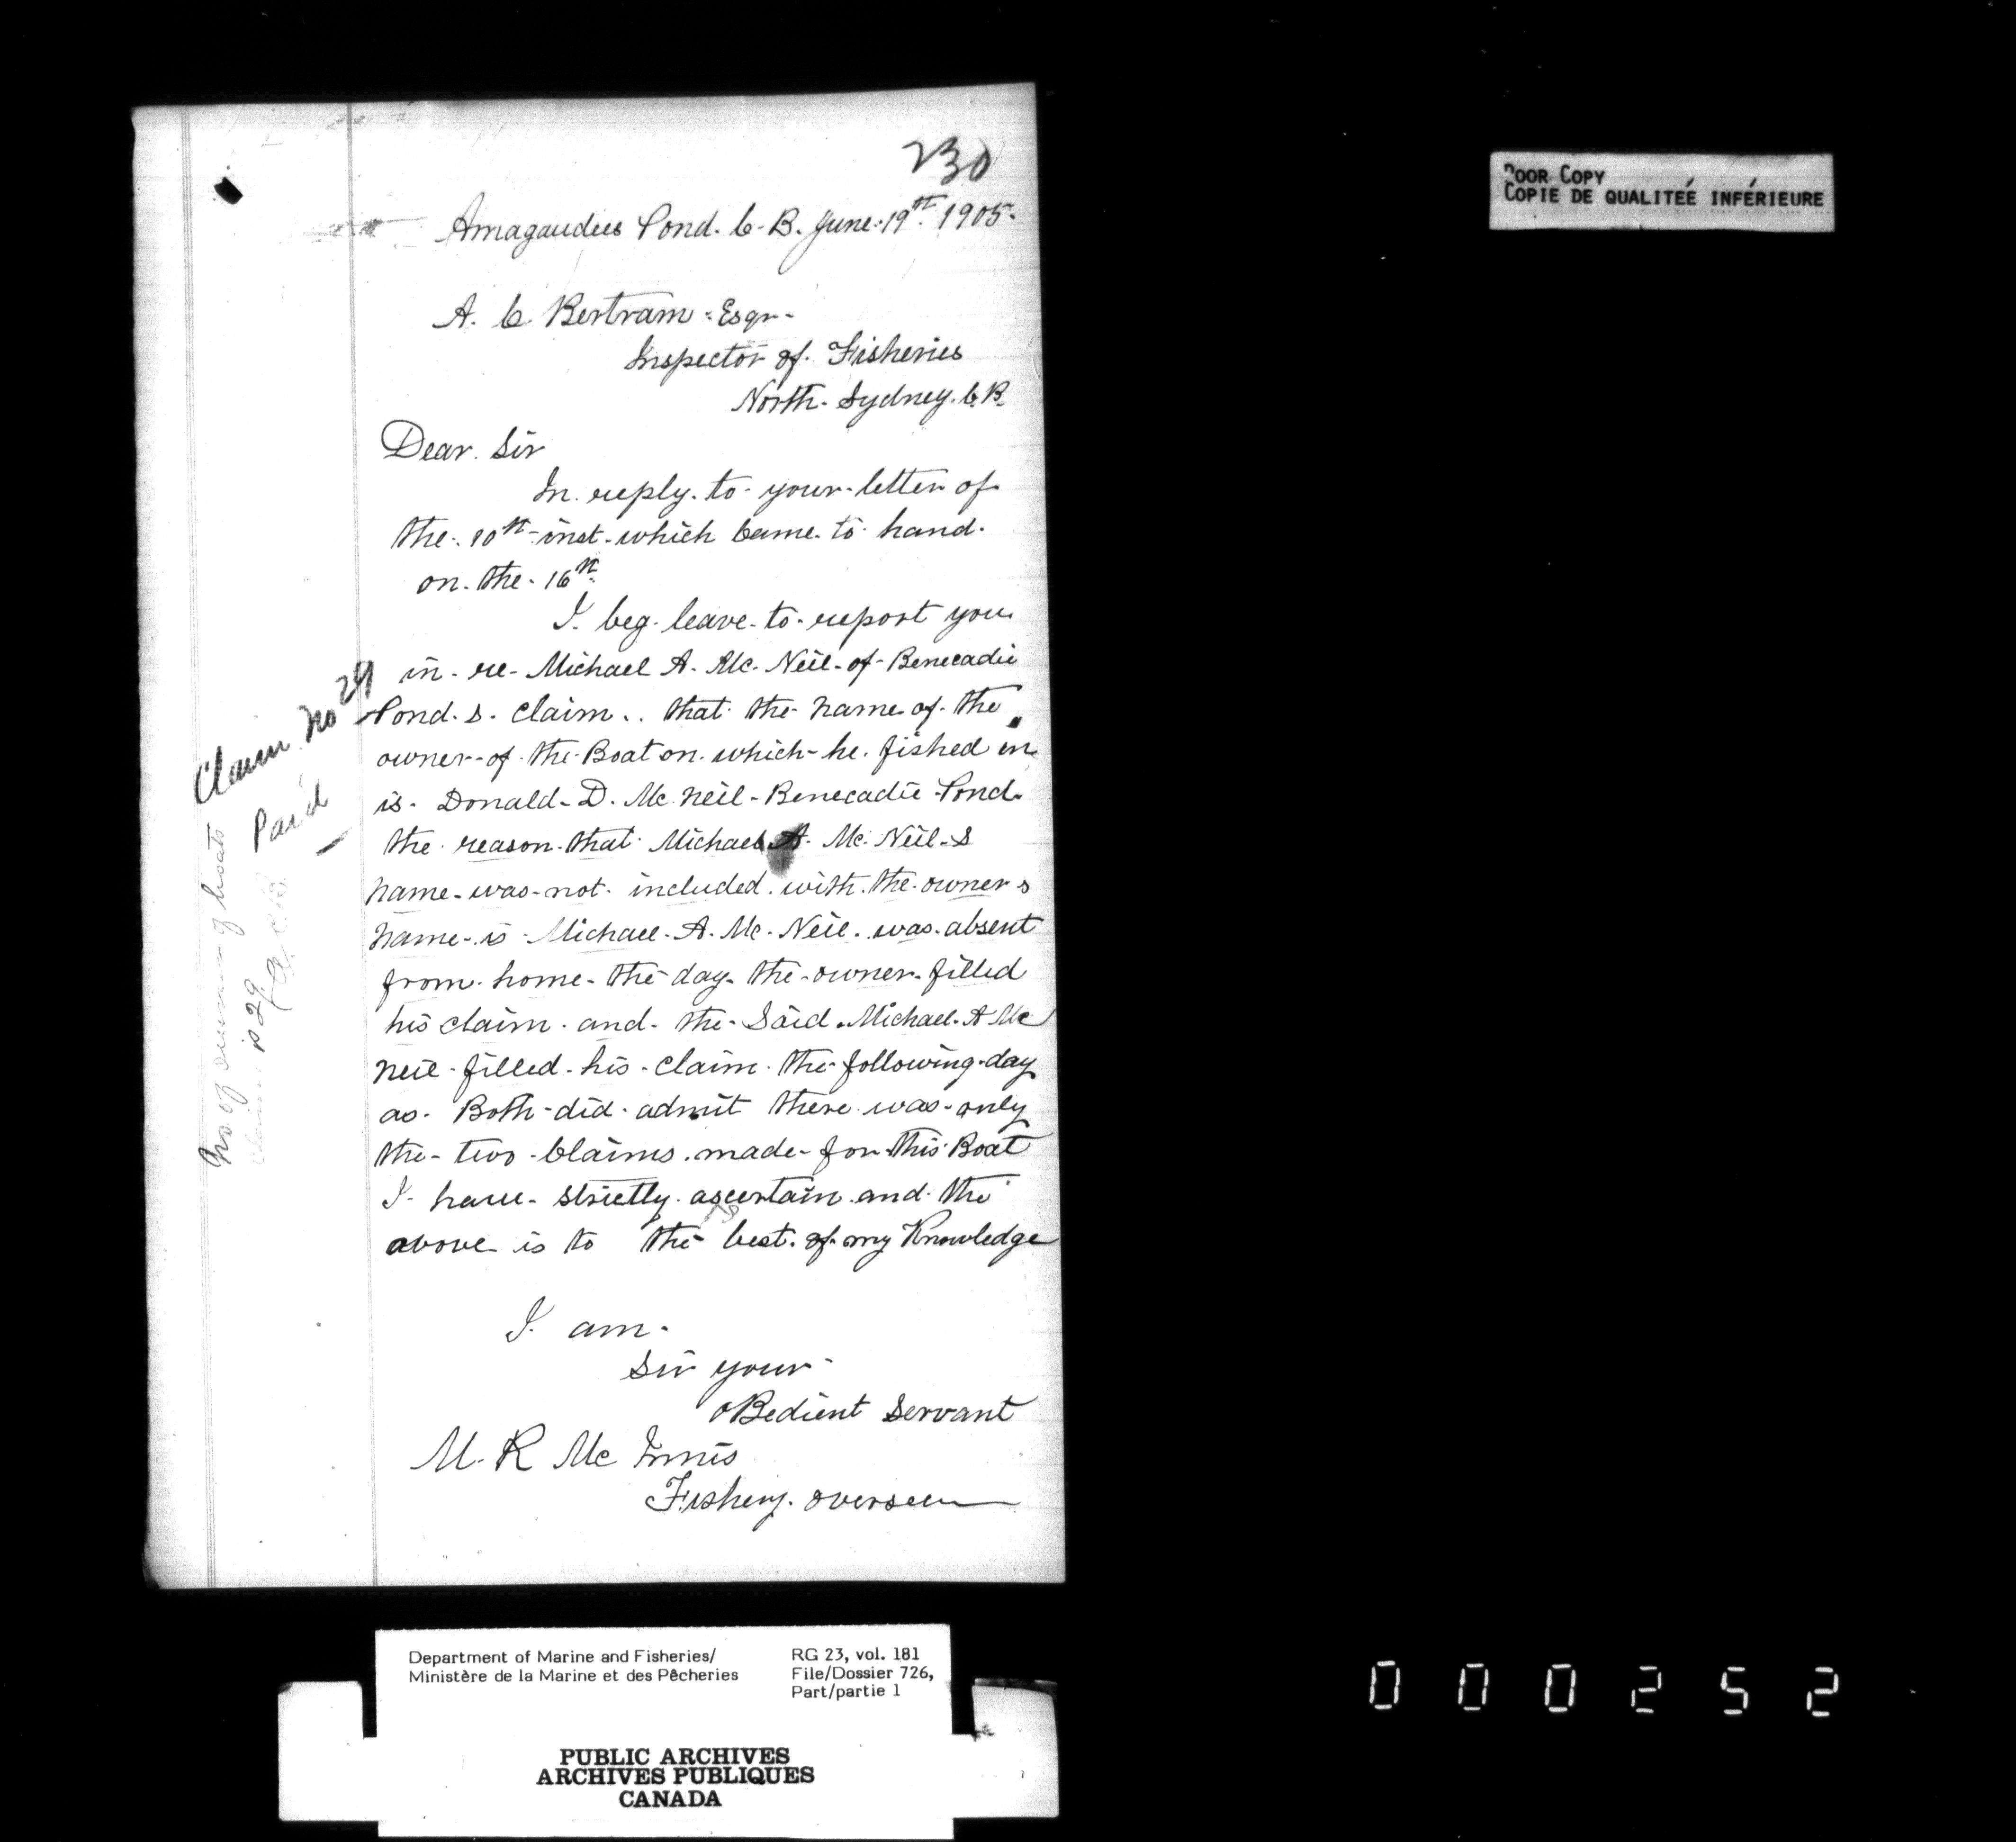 230
Amagaudees Pond. C. B. June. 19th. 1905.
A. C Bertram. Esqr.
Inspector of. Fisheries
North. Sydney. C. B.
Dear. Sir
In. reply. to. your. letter of
the. 10th inst. which Came. to. hand.
on. the. 16th.
I. beg. leave. to. report you
in. re- Michael A. Mc. Neil. of. Benecadie
Pond. s. Claim.. that the name of. the
owner. of. the. Boat on. which. he. fished in
is. Donald. D. Mc. neil. Benecadie Pond.
the reason. that. Michael A. Mc. Neil. s
name. was. not. included. with. the. owner s
name. is Michael. A. Mc. Neil. was. absent
from. home. the day. the. owner. filled
his claim. and. the. Said. Michael. A Mc
neil. filled. his. claim. the following. day
as. Both. did. admit there was. only
the. two. Claims. made. for. this Boat
I. have. strictly. ascertain. and. the
above is to the best. of. my Knowledge
I. am.
Sir your
oBedient Servant
M. R Mc Innis
Fishery. overseer
Claim No 29
Paid
No of owners of boats
claim is 29
POOR COPY
COPIE DE QUALITEÉ INFÉRIEURE
Department of Marine and Fisheries/
Ministère de la Marine et des Pêcheries
RG 23, vol. 181
File/Dossier 726,
Part/partie 1
PUBLIC ARCHIVES
ARCHIVES PUBLIQUES
CANADA
000252